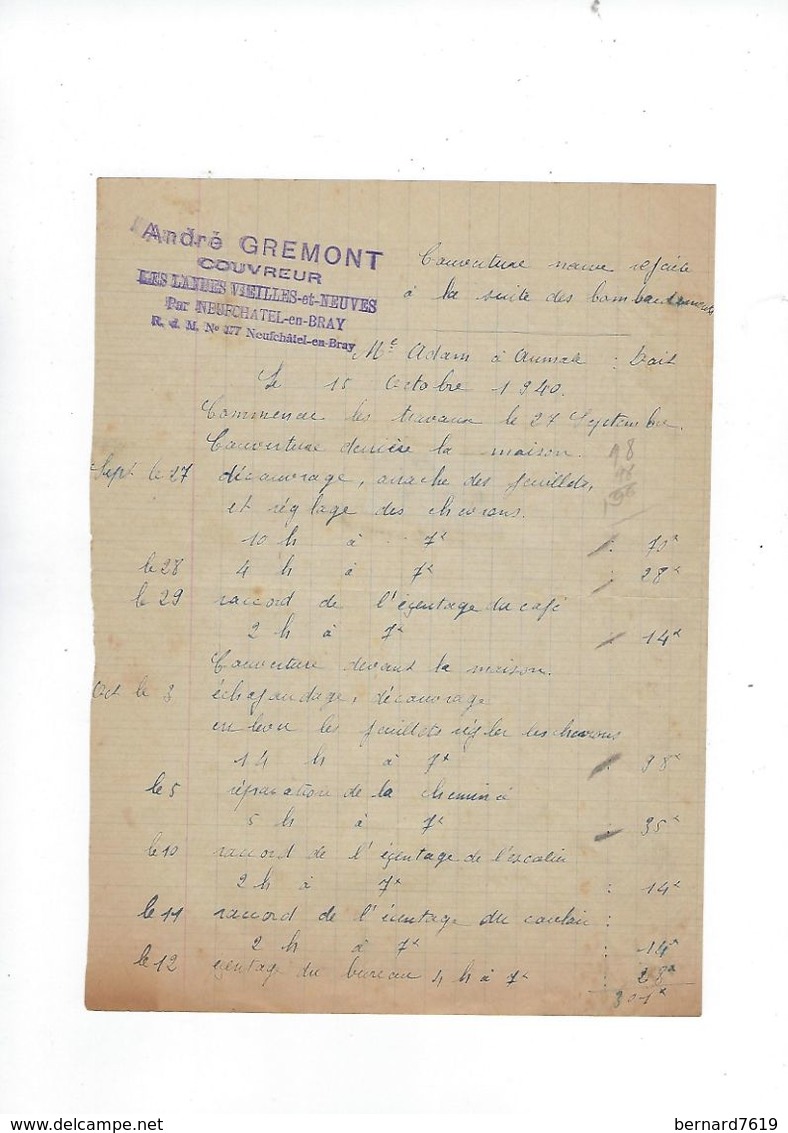 André GREMONT
COUVREUR
LES LANDES VIEILLES-et-NEUVES
Par NEUFCHATEL-en-BRAY
R. d. M. No 177 Neufchâtel-en-Bray
Couverture neuve refaite
à la suite des bombardements
Me Adam à Aumale : Doit
Le 15 Octobre 1940.
Commence les travaux le 27 Septembre.
Couverture derrière la maison.
98
Sept le 27 découvrage, arrache des feuillets,
et réglage des chevrons.
10 h à 7f : 70f
le 28 4 h à 7f : 28f
le 29 raccord de l'égentage du café
2 h à 7f : 14f
Couverture devant la maison.
Oct le 3 échafaudage, découvrage
les feuillets régler les chevrons
14 h à 7f : 98f
le 5 réparation de la cheminé
5 h à 7f : 35f
le 10 raccord de l'égentage de l'escalier
2 h à 7f : 14f
le 11 raccord de l'égentage du couloir :
2 h à 7f : 14f
le 12 egentage du bureau 4 h à 7f : 28f
301f
delcampe.net
bernard7619